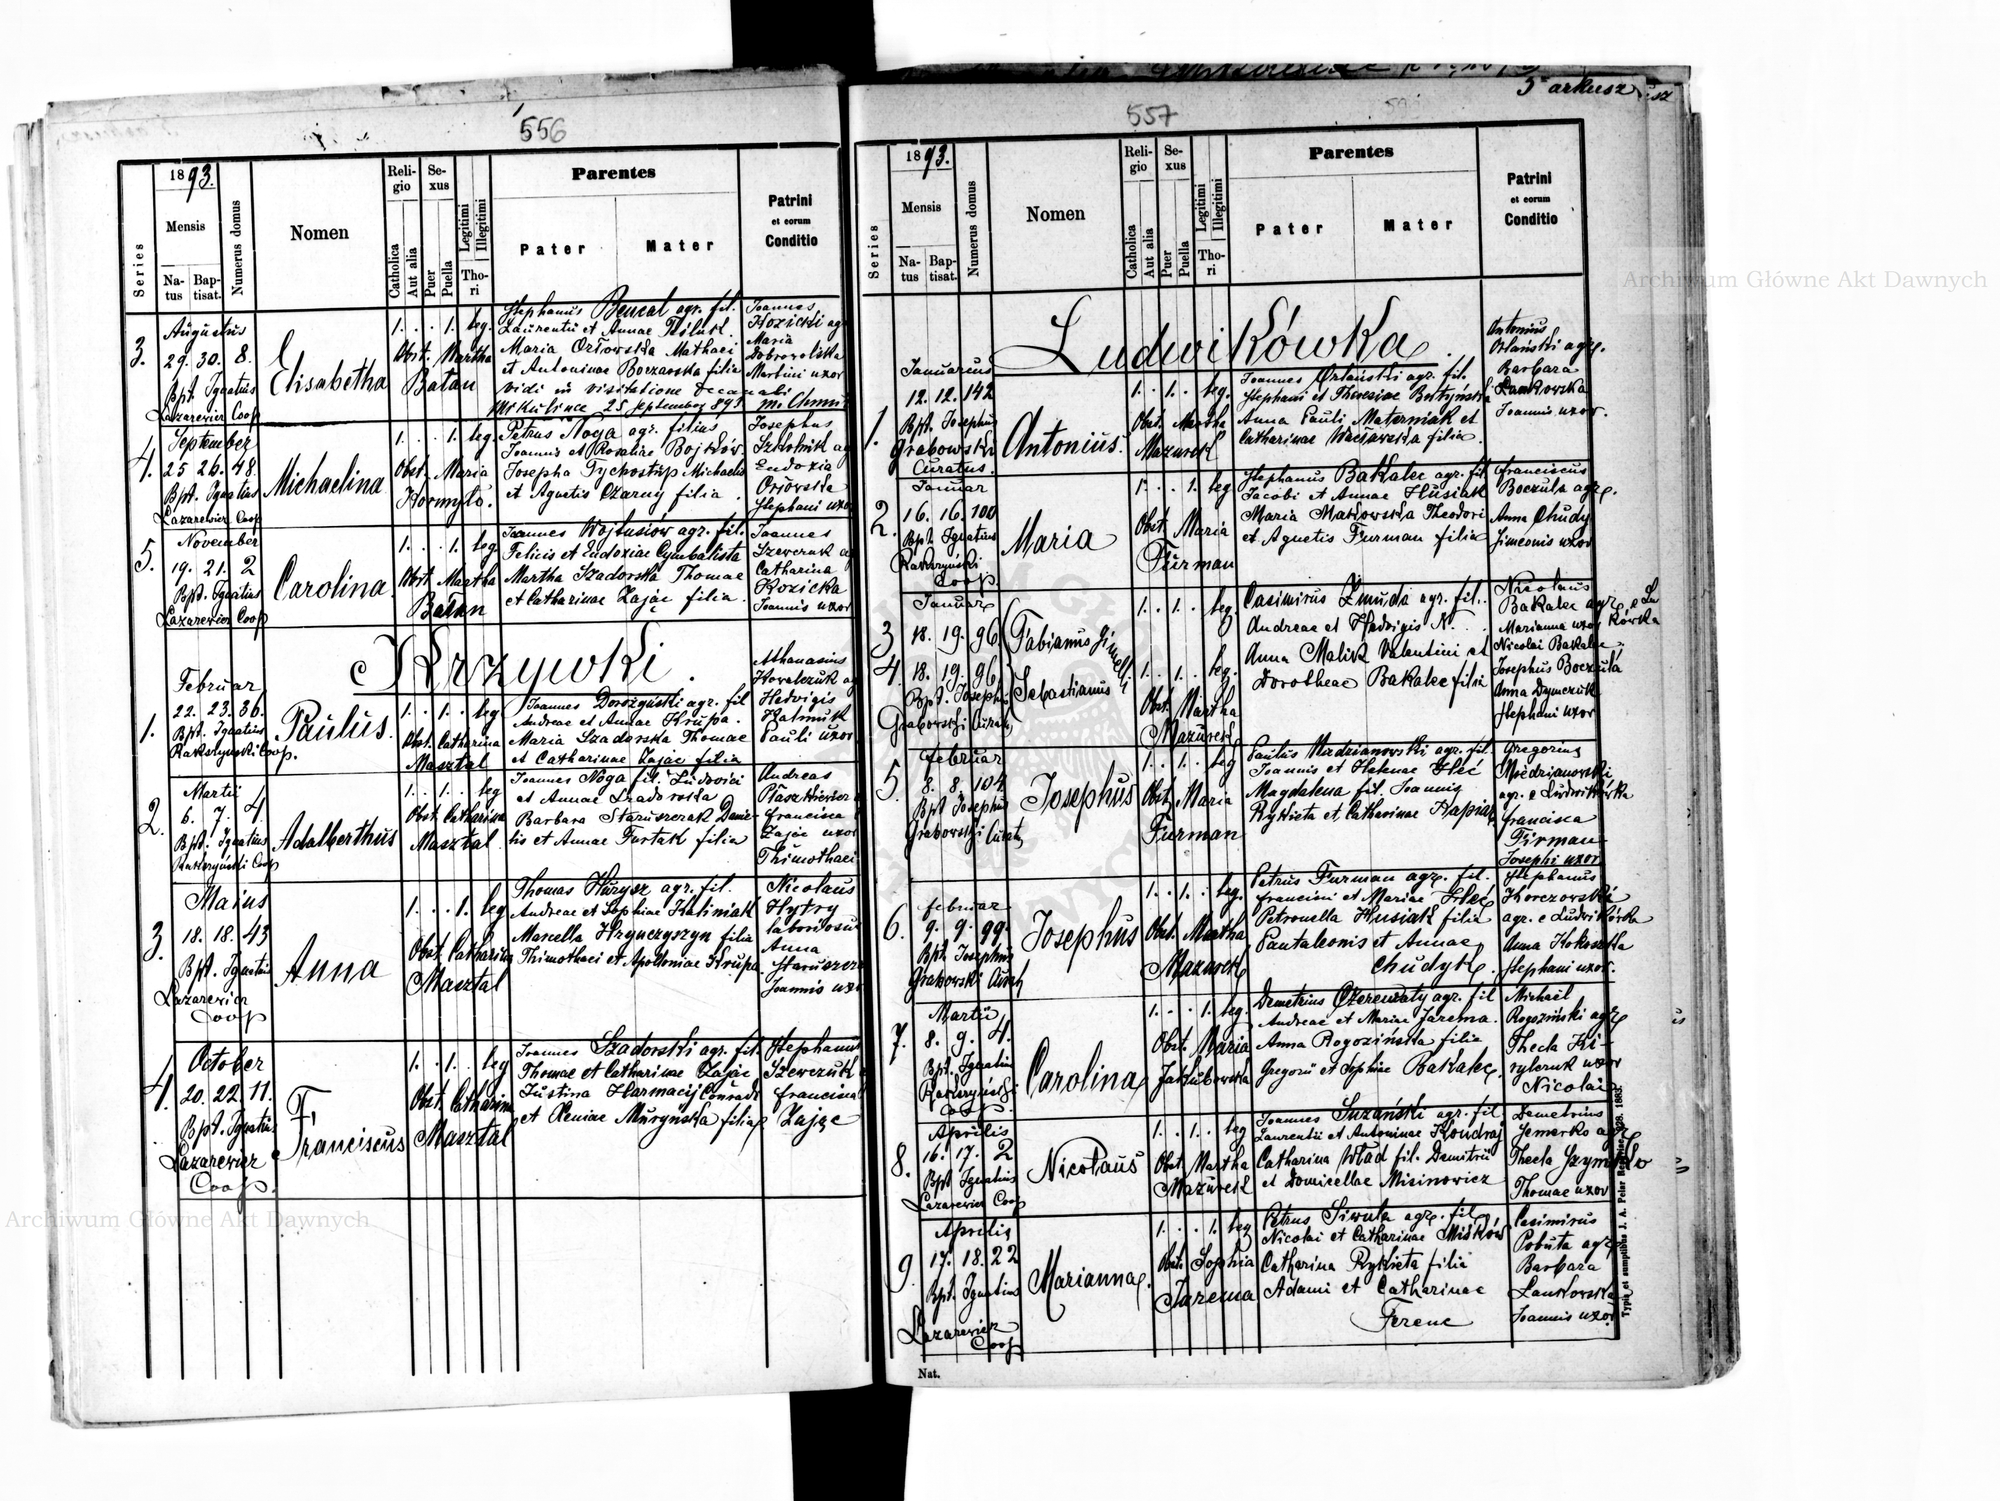 556
1893.
Series
Mensis
Na-
tus
Bap-
tisat.
Numerus domus
Nomen
Reli-
gio
Catholica
Aut alia
Se-
xus
Puer
Puella
Legitimi
Illegitimi
Tho-
ri
Parentes
Pater
Mater
Patrini
et eorum
Conditio
3.
Augustus
29. 30. 8.
Bpt. Ignatius
Lazarewicz Coop
Elisabetha
1. . . 1. leg.
Obst. Martha
Batan
Stephanus Bencal agr. fil.
Laurentii et Annae
Maria Orłowska Mathaei
et Antoninae Boczarska filia
vidi in visitatione decanali
25 september 893
Joannes
Kozicki agr
Maria
Dobrowolska
Martini uxor
4.
September
25 26. 48.
Bpt. Ignatius
Lazarewicz Coop
Michaelina
1. . . 1. leg.
Obst. Maria
Kormyło.
Petrus Noga agr. filius
Joannis et Rosaliae Bojków
Josepha Michaelis
et Agnetis Czarny filia.
Josephus
agr
Eudoxia
Orłowska
Stephani uxor
5.
November
19. 21. 2
Bpt. Ignatius
Lazarewicz Coop
Carolina.
1. . . 1. leg
Obst. Martha
Batan
Joannes Wojtusiów agr. fil.
Felicis et Eudoxiae Cymbalista
Martha Szadorska Thomae
et Catharinae Zając filia.
Joannes
Szewczuk
Catharina
Kozicka
Joannis uxor
Krzywki.
1.
Februar
22. 23. 36.
Bpt. Ignatius
Coop.
Paulus.
1. . 1. . leg
Obst. Catharina
Masztal
Joannes agr. fil
Andreae et Annae Krupa.
Maria Szadorska Thomae
et Catharinae Zając filia
Athanasius
Kowalczuk
Hedvigis
Kałmuk
Pauli uxor
2.
Martii
6. 7. 4
Bpt. Ignatius
Coop
Adalberthus
1. . 1. . leg
Obst. Catharina
Masztal
Joannes Noga fil. Ludovici
et Annae Szadorska
Barbara Staruszczak Danie-
lis et Annae Furtak filia
Andreas
Ptaszkiewicz
Francisca
Zając uxor
Thimothaei
3.
Maius
18. 18. 43
Bpt. Ignatius
Lazarewicz
Coop
Anna
1. . . 1. leg
Obst. Catharina
Masztal
Thomas agr. fil.
Andreae et Sophiae Kaliniak
Marcella Hrynczyszyn filia
Thimothaei et Apolloniae Krupa.
Nicolaus
Hytry
laboriosus
Anna
Joannis uxor
4.
October
20. 22. 11.
Bpt. Ignatius
Lazarewicz
Coop.
Franciscus
1. . 1. . leg
Obst. Catharina
Masztal
Joannes Szadorski agr. fil.
Thomae et Catharinae Zając
Justina Harmacij Conradi
et Xeniae Muryńska filia
Stephanus
Szewczuk
Francisca
Zając
557
5 arkusz
1893.
Series
Mensis
Na-
tus
Bap-
tisat.
Numerus domus
Nomen
Reli-
gio
Catholica
Aut alia
Se-
xus
Puer
Puella
Legitimi
Illegitimi
Tho-
ri
Parentes
Pater
Mater
Patrini
et eorum
Conditio
Ludwikówka.
1.
Januarius
12. 12. 142
Bpt. Josephus
Grabowski
Curatus.
Antonius.
1. . 1. . leg.
Obst. Martha
Mazurek
Joannes Orlański agr. fil.
Stephani et Theresiae
Anna Pauli Materniak et
Catharinae filia.
Antonius
Orlański agr.
Barbara
Lankowska
Joannis uxor.
2.
Januar
16. 16. 100
Bpt. Ignatius
Coop.
Maria
1. . . 1. leg
Obst. Maria
Furman
Stephanus Bakalec agr. fil
Jacobi et Annae Husiak
Maria Malkowska Theodori
et Agnetis Furman filia
Franciscus
Boczula agr.
Anna Chudy
Simeonis uxor
3
4.
Januar
18. 19. 96.
18. 19. 96.
Bpt. Josephus
Grabowski Curatus
Fabianus
Sebastianus
Gimelli
1. . 1. . leg.
1. . 1. . leg.
Obst. Martha
Mazurek
Casimirus Żmuda agr. fil.
Andreae et Hedvigis N.
Anna Malik Valentini et
Dorotheae Bakalec filia
Nicolaus
Bakalec agr.
Marianna uxor
Nicolai Bakalec
Josephus Boczula
Anna Dymczuk
Stephani uxor
5.
Februar
8. 8. 104
Bpt. Josephus
Grabowski Curat
Josephus
1. . 1. . leg
Obst. Maria
Furman
Paulus agr. fil.
Joannis et Helenae Hłeć
Magdalena fil. Joannis
Rykieta et Catharinae
Gregorius
agr. e Ludwikówka
Francisca
Firman
Josephi uxor
6.
Februar
9. 9. 99.
Bpt. Josephus
Grabowski Curat
Josephus
1. . 1. . leg.
Obst. Martha
Mazurek
Petrus Furman agr. fil.
Francisci et Mariae Hłeć
Petronella Husiak filia
Pantaleonis et Annae
Chudyk.
Stephanus
Korczowski
agr. e Ludwikówka
Anna Kokoszka
Stephani uxor.
7.
Martii
8. 9. 4.
Bpt. Ignatius
Coop.
Carolina
1. . . 1. leg.
Obst. Maria
Jakubowska
Demetrius agr. fil
Andreae et Mariae Jarema.
Anna Rogozińska filia
Gregorii et Sophiae Bakalec.
Michael
Rogoziński agr
Thecla Ki-
rylczuk uxor
Nicolai
8.
Aprilis
16. 17. 2
Bpt Ignatius
Lazarewicz Coop
Nicolaus
1. . 1. . leg
Obst. Martha
Mazurek
Joannes Suzański agr. fil.
Laurentii et Antoninae Kondraj
Catharina Wład fil. Demetrii
et Domicellae Misinowicz
Demetrius
Semerko agr
Thecla Szymko
Thomae uxor
9.
Aprilis
17. 18. 22
Bpt. Ignatius
Lazarewicz
Coop
Marianna.
1. . . 1. leg
Obst. Sophia
Jarema
Petrus Siwula agr. fil.
Nicolai et Catharinae Miśków
Catharina Rykieta filia
Adami et Catharinae
Ferenc
Casimirus
Pobuta agr
Barbara
Lankowska
Joannis uxor
Nat.
Archiwum Główne Akt Dawnych
Archiwum Główne Akt Dawnych